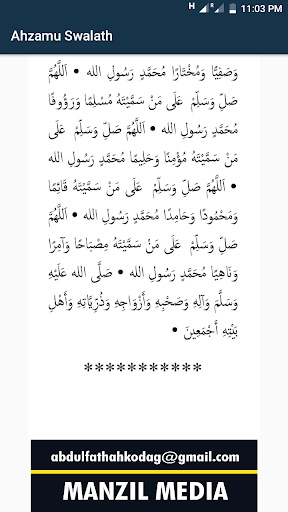 H 11:03 PM
Ahzamu Swalath
وَصَفِيًّا وَمُخْتَارًا مُحَمَّدٍ رَسُولِ الله • اَللَّهُمَّ
صَلِّ وَسَلِّمْ عَلَى مَنْ سَمَّيْتَهُ مُسْلِمًا وَرَؤُوفًا
مُحَمَّدٍ رَسُولِ الله • اَللَّهُمَّ صَلِّ وَسَلِّمْ عَلَى
مَنْ سَمَّيْتَهُ مُؤْمِنًا وَحَلِيمًا مُحَمَّدٍ رَسُولِ الله
• اَللَّهُمَّ صَلِّ وَسَلِّمْ عَلَى مَنْ سَمَّيْتَهُ قَائِمًا
وَمَحْمُودًا وَحَامِدًا مُحَمَّدٍ رَسُولِ الله • اَللَّهُمَّ
صَلِّ وَسَلِّمْ عَلَى مَنْ سَمَّيْتَهُ مِصْبَاحًا وَآمِرًا
وَنَاهِيًا مُحَمَّدٍ رَسُولِ الله • صَلَّى الله عَلَيْهِ
وَسَلَّمَ وَآلِهِ وَصَحْبِهِ وَأَزْوَاجِهِ وَذُرِّيَّاتِهِ وَأَهْلِ
بَيْتِهِ أَجْمَعِينَ •
***********
abdulfathahkodag@gmail.com
MANZIL MEDIA